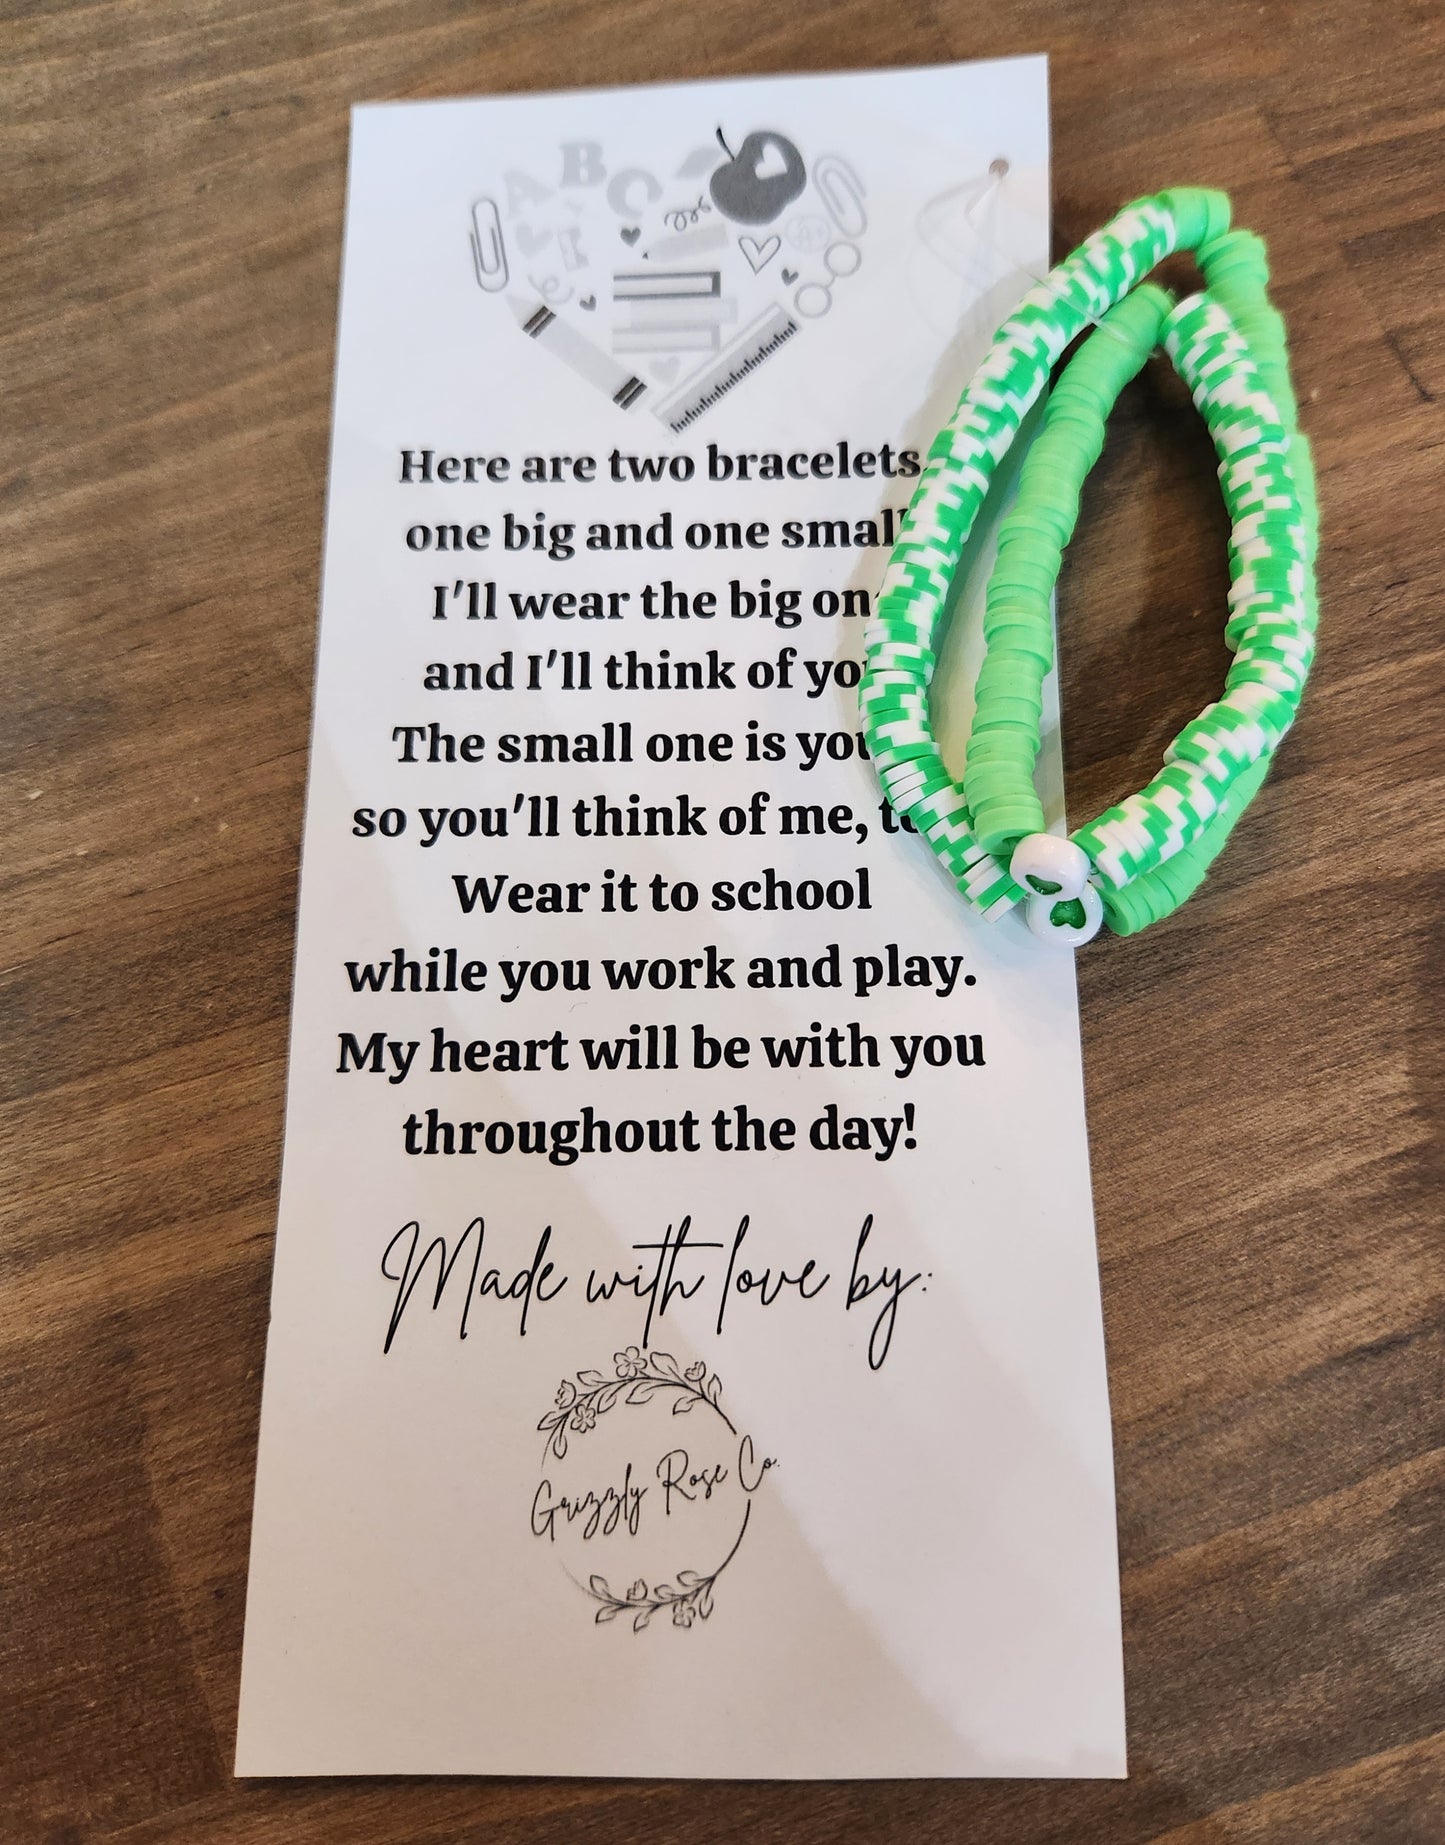 A B C
A+
Here are two bracelets
one big and one small
I'll wear the big
and I'll think of
The small one is
so you'll think of me,
Wear it to school
while you work and play.
My heart will be with you
throughout the day!
Made with love by:
Grizzly Rose Co.